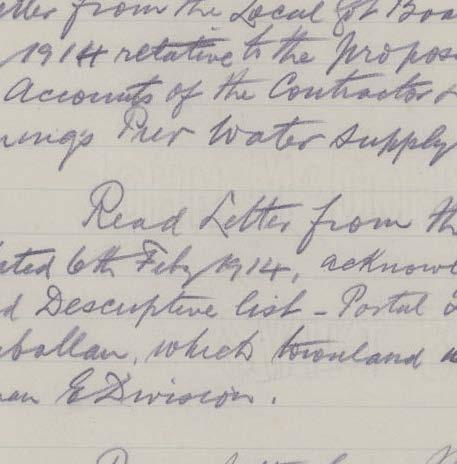 etter from the Local Gt Boa
1914 relative to the propos
Accounts of the Contractor
nings Pier Water Supply
Read Letter from th
ated 6th Feby 1914, acknowl
d Descriptive list - Portal
bollan, which townland
an E Division.